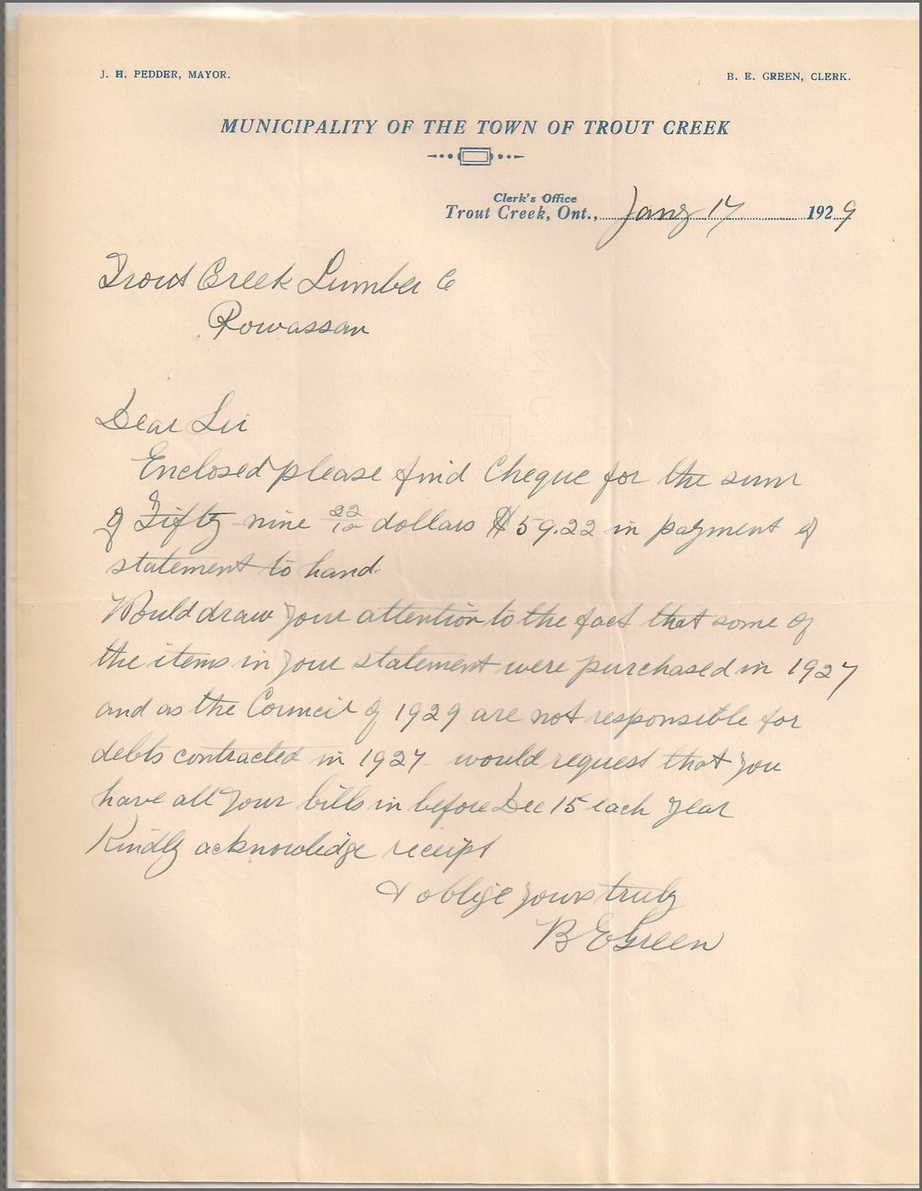 J. H. PEDDER, MAYOR.
B. E. GREEN, CLERK.
MUNICIPALITY OF THE TOWN OF TROUT CREEK
Clerk's Office
Trout Creek, Ont., Jany 17 1929
Trout Creek Lumber Co
Powassan
Dear Sir
Enclosed please find Cheque for the sum
of Fifty nine 22/10 dollars $59.22 in payment of
statement to hand.
Would draw your attention to the fact that some of
the items in your statement were purchased in 1927
and as the Council of 1929 are not responsible for
debts contracted in 1927 would request that you
have all your bills in before Dec 15 each year
Kindly acknowledge receipt
& oblige yours truly
B E Green